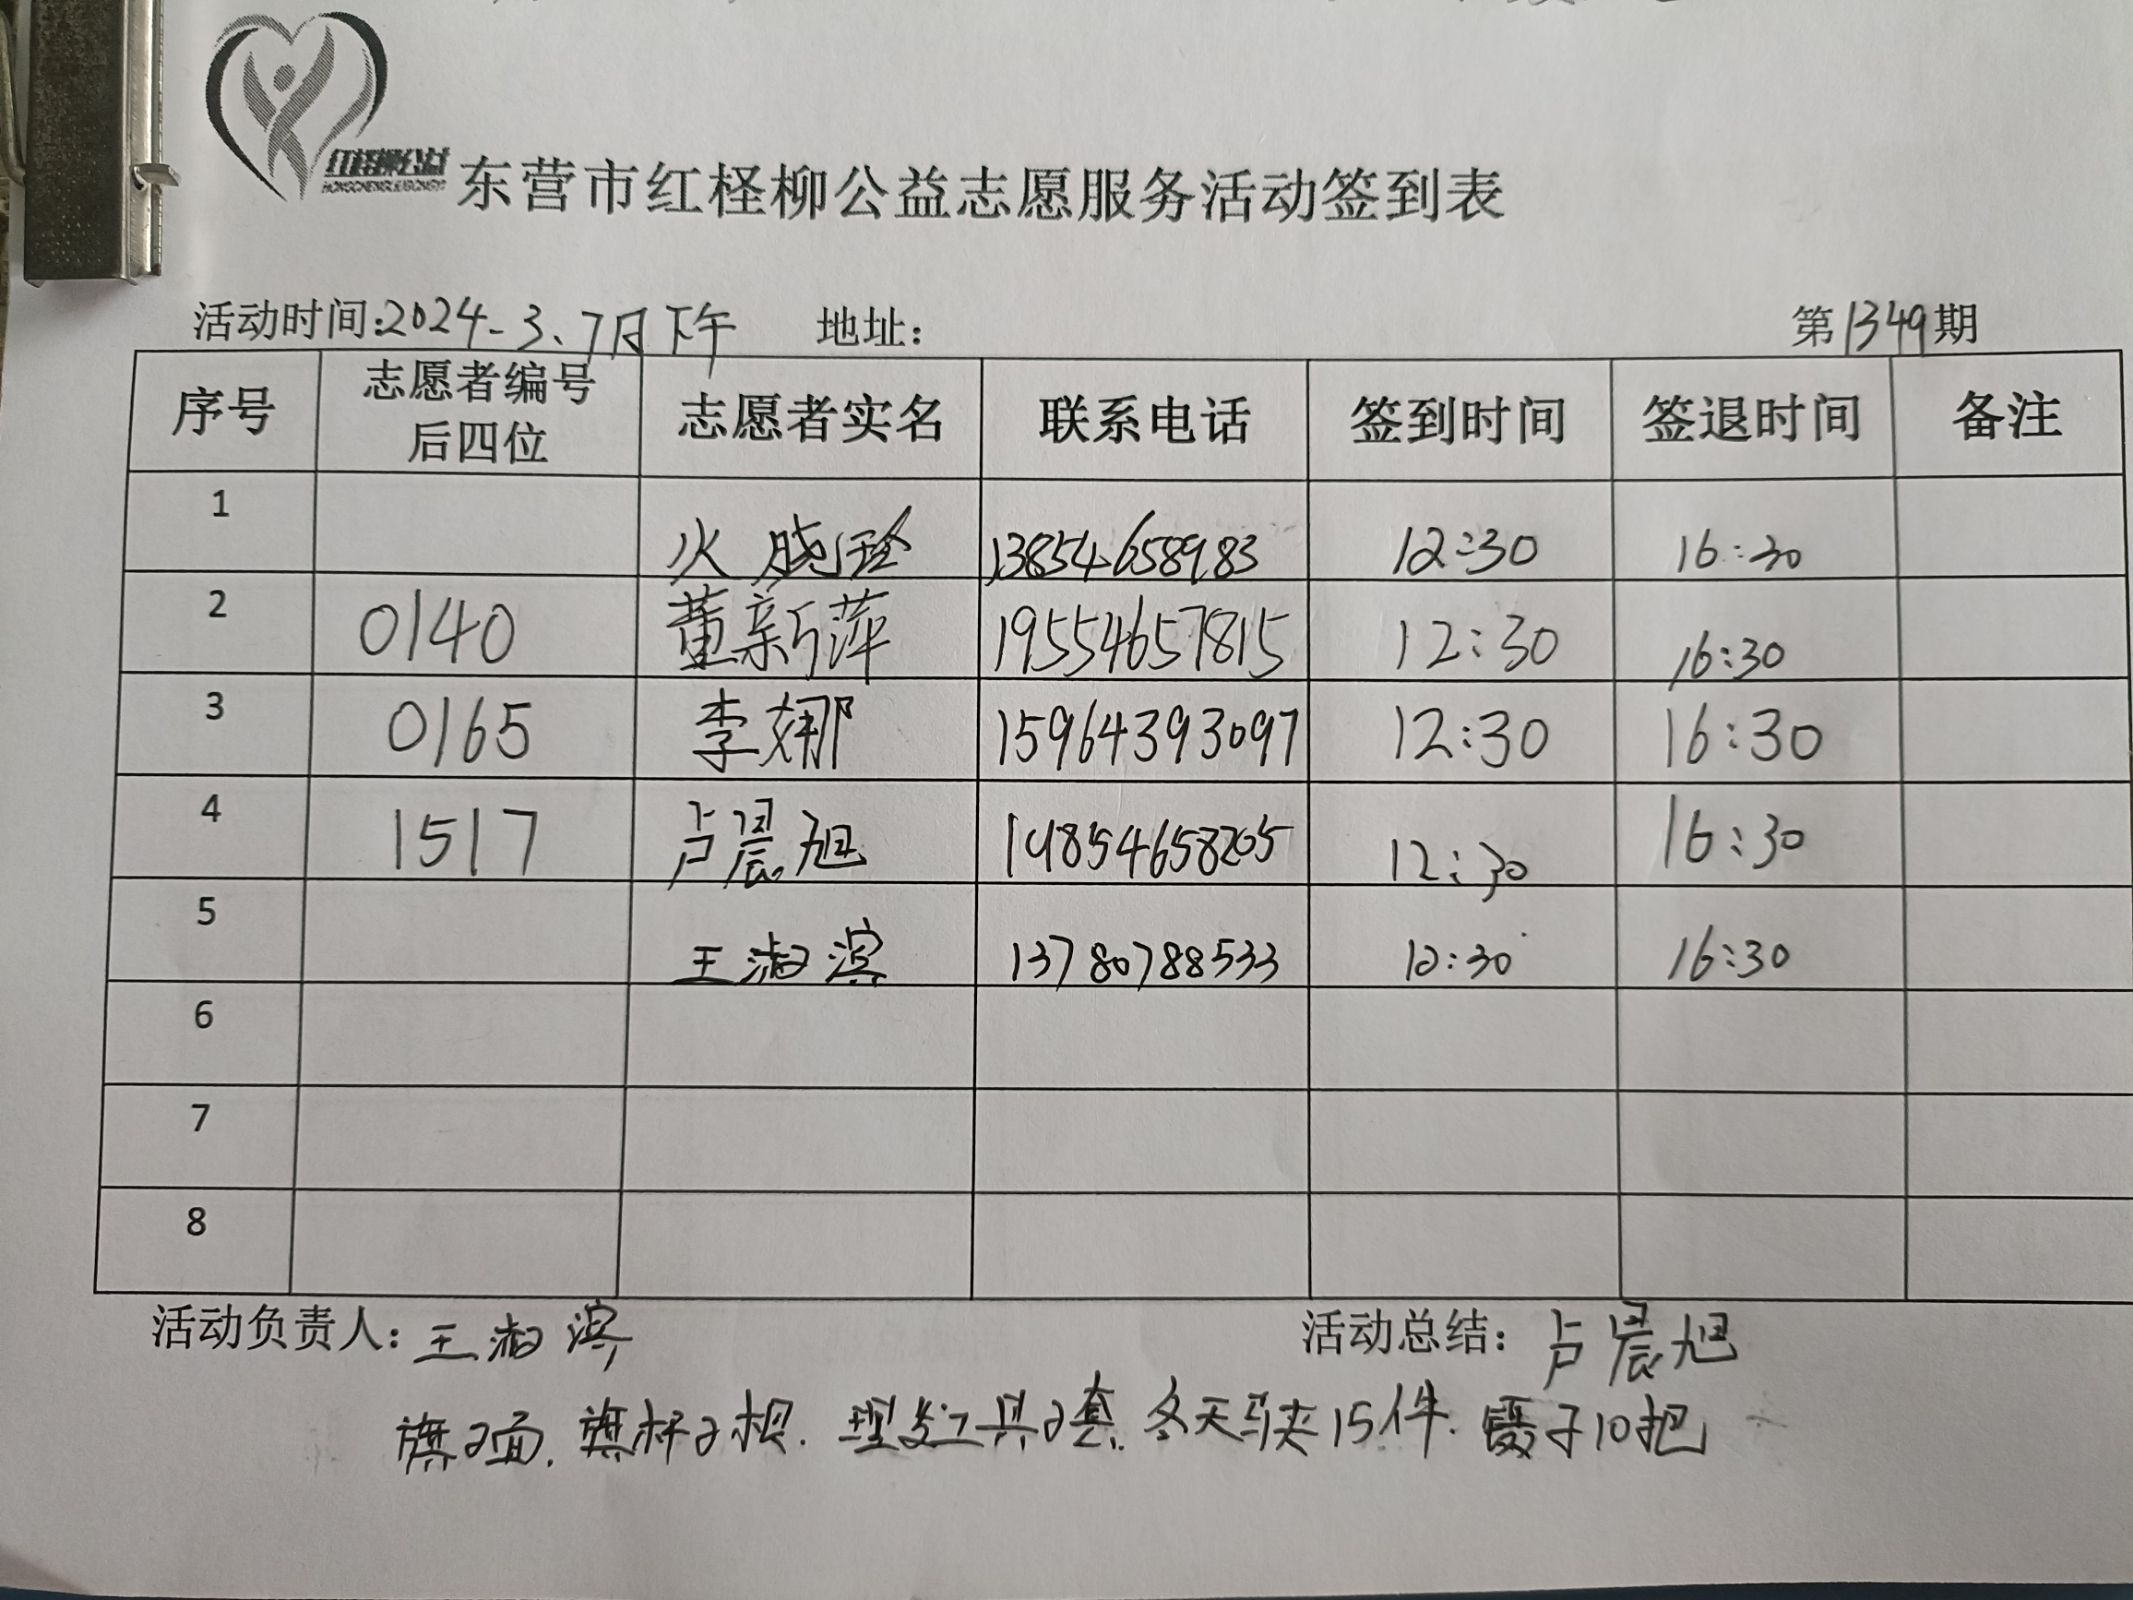 红柽柳公益
HONGCHENGLIUGONGYI
东营市红柽柳公益志愿服务活动签到表
活动时间:2024-3、7日下午 地址: 第1349期
序号 志愿者编号后四位 志愿者实名 联系电话 签到时间 签退时间 备注
1 火晓玲 13854658983 12:30 16:30
2 0140 董新萍 19554657815 12:30 16:30
3 0165 李娜 15964393097 12:30 16:30
4 1517 卢晨旭 12:30 16:30
5 王淑滨 13780788533 12:30 16:30
6
7
8
活动负责人:王淑滨 活动总结:卢晨旭
旗2面.旗杆2根.理发工具2套.冬天马夹15件.镊子10把